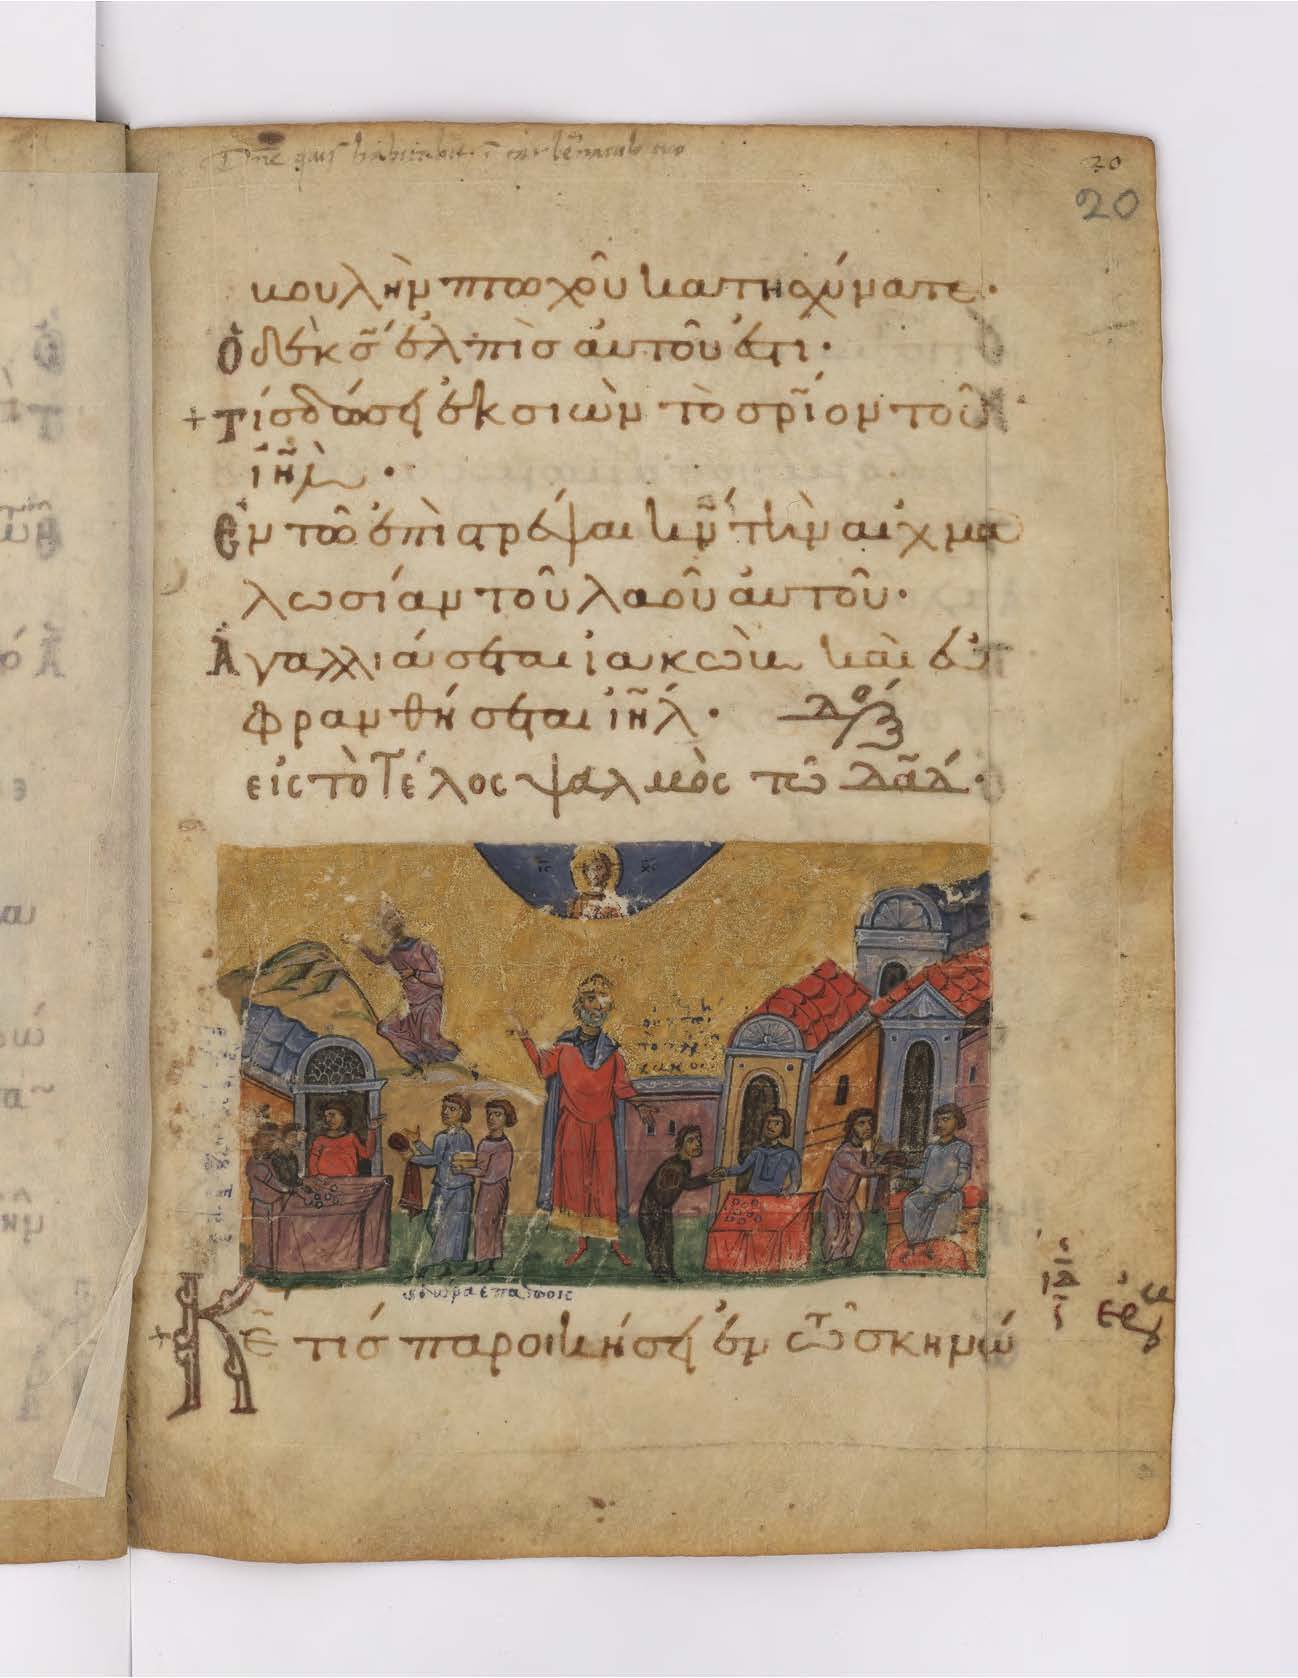 Dn̄e quis habitabit ī
20
20
βουλὴν πτωχοῦ κατησχύνατε·
Ὁ δὲ κ̄σ ἐλπὶσ αὐτοῦ ἐστι·
+ Τίσ δώσει ἐκ σιὼν τὸ σρ̄ιον τοῦ
ιη̄λ·
Ἐν τῶ ἐπιστρέψαι κ̄ν τὴν αἰχμα
λωσίαν τοῦ λαοῦ αὐτοῦ·
Ἀγαλλιάσεται ἰακὼβ καὶ εὐ
φρανθήσεται ιη̄λ·
εἰς τὸ τέλος ψαλμὸς τῶ δᾱδ·
ῑς χ̄ς
+ Κ̄ε τίσ παροικήσει ἐν τῶ σκηνώ
ιδ